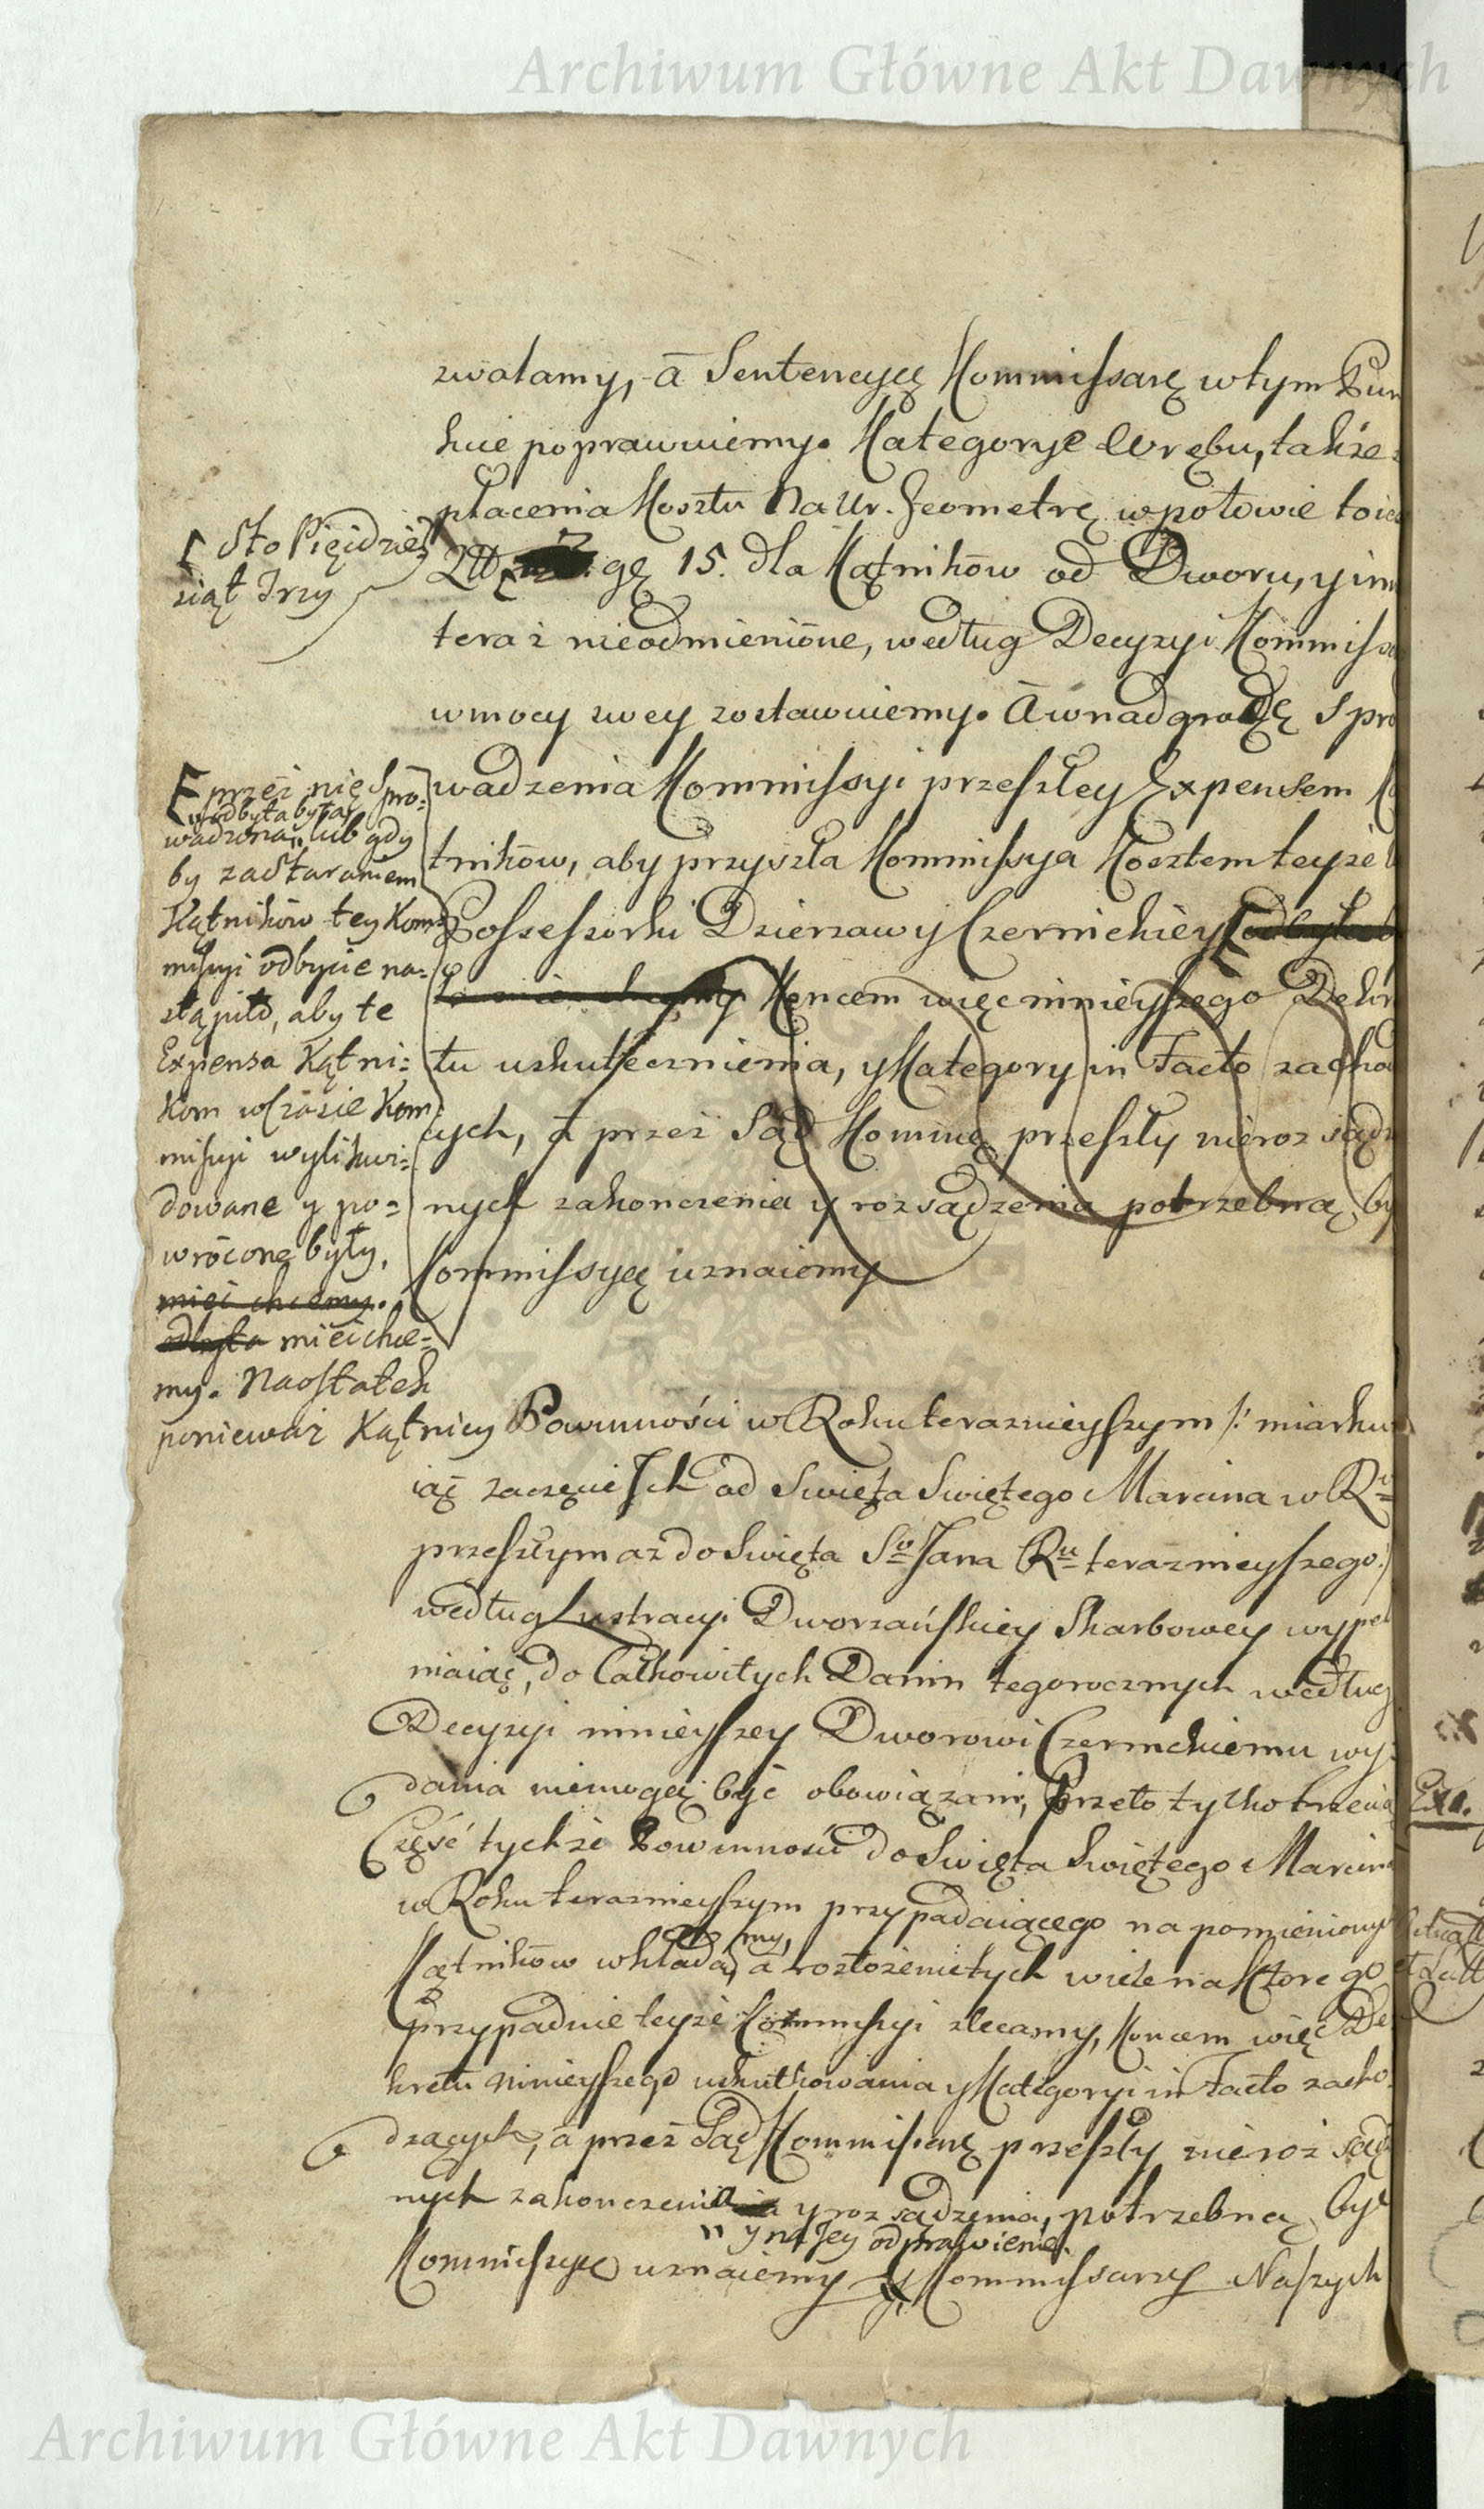 Archiwum Główne Akt Dawnych
zwalamy, a Sentencyę Kommissarę w tym Pun
kcie poprawuiemy. Kategorye Wrębu, także
płacenia Kosztu Na Ur. Geometrę w połowie to iest
[ Sto Pięćdzie
siąt Trzy
gę 15. dla Kątnikow od Dworu, y in
teraz nieodmienione, według Decyzyi Kommiss
w mocy swey zostawuiemy. A w nadgrodę Spro
wadzenia Kommissyi przeszłey Expensem Ką
tnikow, aby przyszła Kommissya Kosztem teyże
Possessorki Dzierzawy Czernickiey
Koncem więc ninieyszego Dekre
tu uskutecznienia, y Kategory in Facto zacho
cych, a przez Sąd Kommę przeszły nierozsądzo
nych zakonczenia y rozsądzenia potrzebną by
Kommissyą uznaiemy
[ przez nię spro=
odbyta była
wadzona, lub gdy
by za staraniem
Kątnikow tey Kom=
missyi odbycie na=
stąpiło, aby te
Expensa Kątni=
kom w Czasie Kom=
missyi wylikwi=
dowane y po=
wrócone były,
mieć chcemy.
odbyta mieć chce=
my. Na ostatek
ponieważ Kątnicy Powinności w Roku teraznieyszym /: miarku
iąc zaczęcie Jch od Swięta Swiętego Marcina w Ru
przeszłym aż do Swięta Sgo Jana Ru teraznieyszego :/
według Lustracyi Dworzańskiey Skarbowey wypeł
niaiąc, do Całkowitych Danin tegorocznych według
Decyzyi ninieyszey Dworowi Czernickiemu wy=
dania niemogą być obowiązani, Przeto tylko trzecią
Część tychże Powinności do Swięta Swiętego Marcina
w Roku teraznieyszym przypadaiącego na pomienionych
Kątnikow wkładamy, a rozłożenie tych wiele na Ktorego
przypadnie teyże Kommissyi zlecamy, Koncem więc De
kretu ninieyszego uskutkowania y Kategoryi in Facto zacho=
dzących, a przez Sąd Kommissarę przeszły nierozsądzo
nych zakonczenia y rozsądzenia, potrzebną być
" y na Jey odprawienie
Kommissyą uznaiemy y Kommissarzy Naszych
Archiwum Główne Akt Dawnych